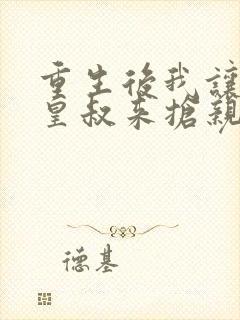 重生後我讓
皇叔來搶親
德基